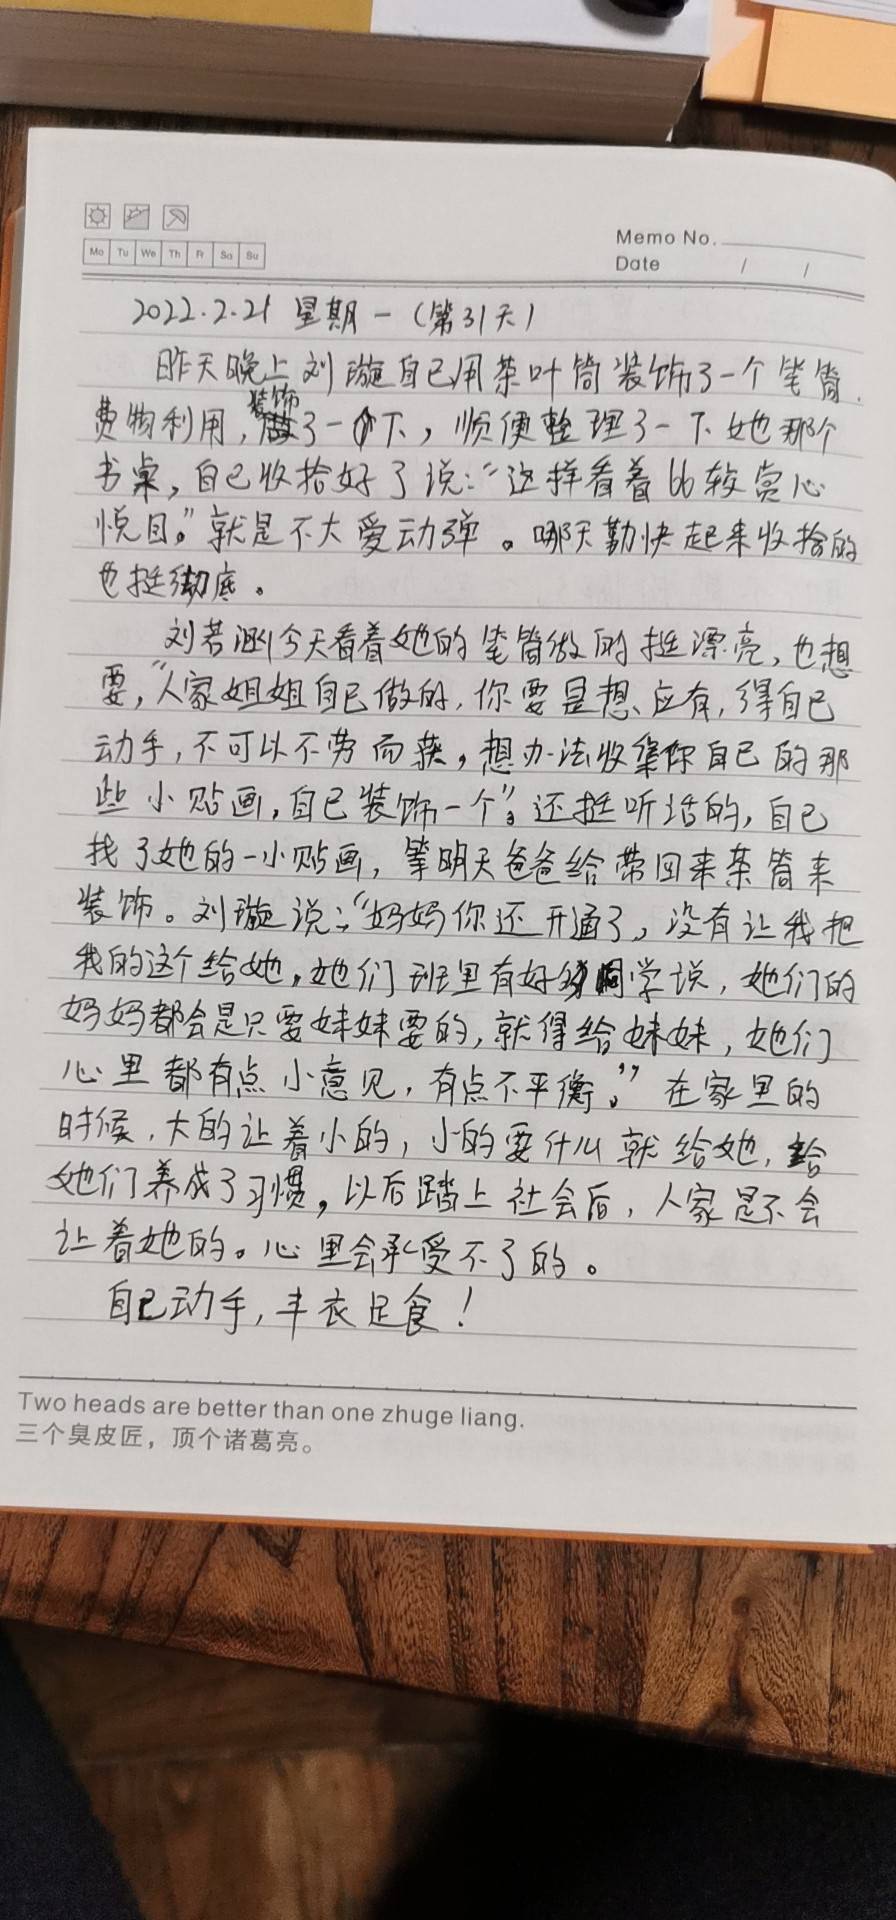 Memo No.
Mo Tu We Th Fr Sa Su
Date / /
2022.2.21 星期一（第31天）
昨天晚上刘璇自己用茶叶筒装饰了一个笔筒.
费物利用，装饰了一下，顺便整理了一下她那个
书桌，自己收拾好了说：“这样看着比较赏心
悦目。”就是不大爱动弹。哪天勤快起来收拾的
也挺彻底。
刘若涵今天看着她的笔筒做的挺漂亮，也想
要，“人家姐姐自己做的，你要是想应有，得自己
动手，不可以不劳而获，想办法收集你自己的那
些小贴画，自己装饰一个”。还挺听话的，自己
找了她的一小贴画，等明天爸爸给带回来茶筒来
装饰。刘璇说：“妈妈你还开通了，没有让我把
我的这个给她，她们班里有好多同学说，她们的
妈妈都会是只要妹妹要的，就得给妹妹，她们
心里都有点小意见，有点不平衡。”在家里的
时候，大的让着小的，小的要什么就给她，给
她们养成了习惯，以后踏上社会后，人家是不会
让着她的。心里会承受不了的。
自己动手，丰衣足食！
Two heads are better than one zhuge liang.
三个臭皮匠，顶个诸葛亮。